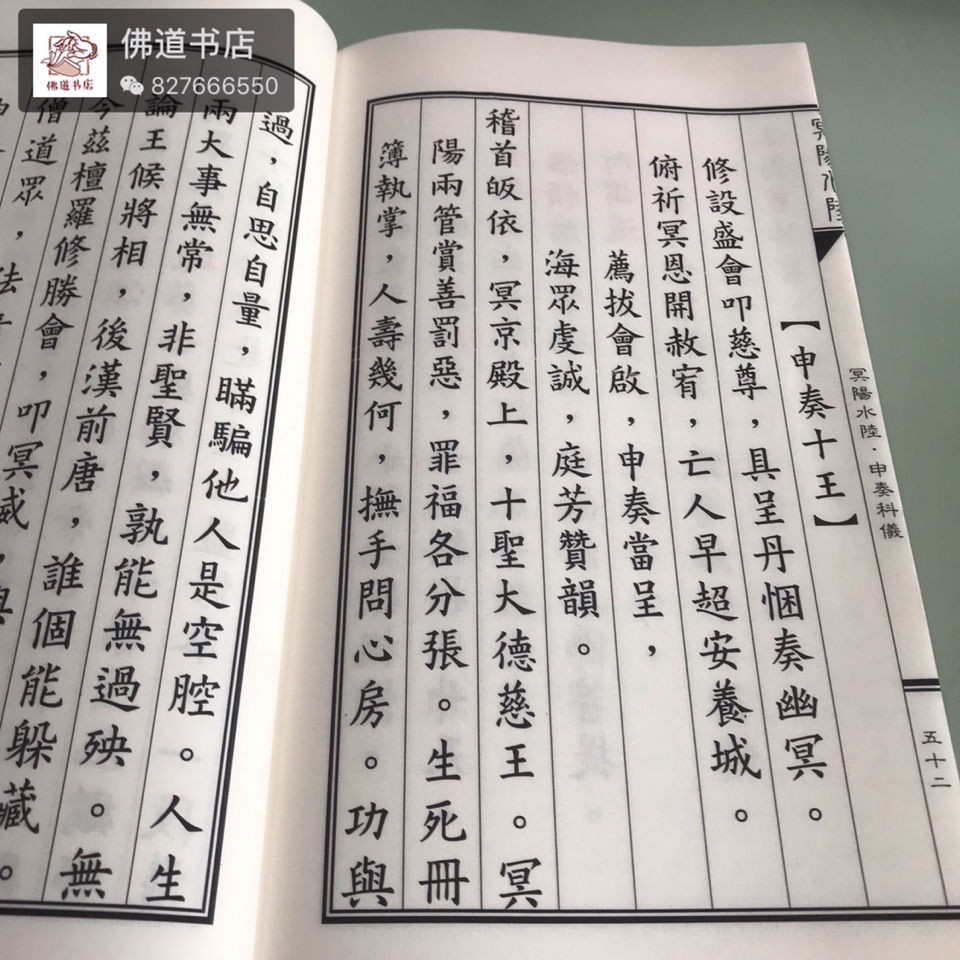 佛道书店
佛道书店
827666550
冥陽水陸
冥陽水陸·申奏科儀
五十二
【申奏十王】
修設盛會叩慈尊,具呈丹悃奏幽冥。
俯祈冥恩開赦宥,亡人早超安養城。
薦拔會啟,申奏當呈,
海眾虔誠,庭芳贊韻。
稽首皈依,冥京殿上,十聖大德慈王。冥
陽兩管賞善罰惡,罪福各分張。生死冊
簿執掌,人壽幾何,撫手問心房。功與
過,自思自量,瞞騙他人是空腔。人生
兩大事無常,非聖賢,孰能無過殃。無
論王候將相,後漢前唐,誰個能躲藏。
今茲檀羅修勝會,叩冥威,與
僧道眾,法